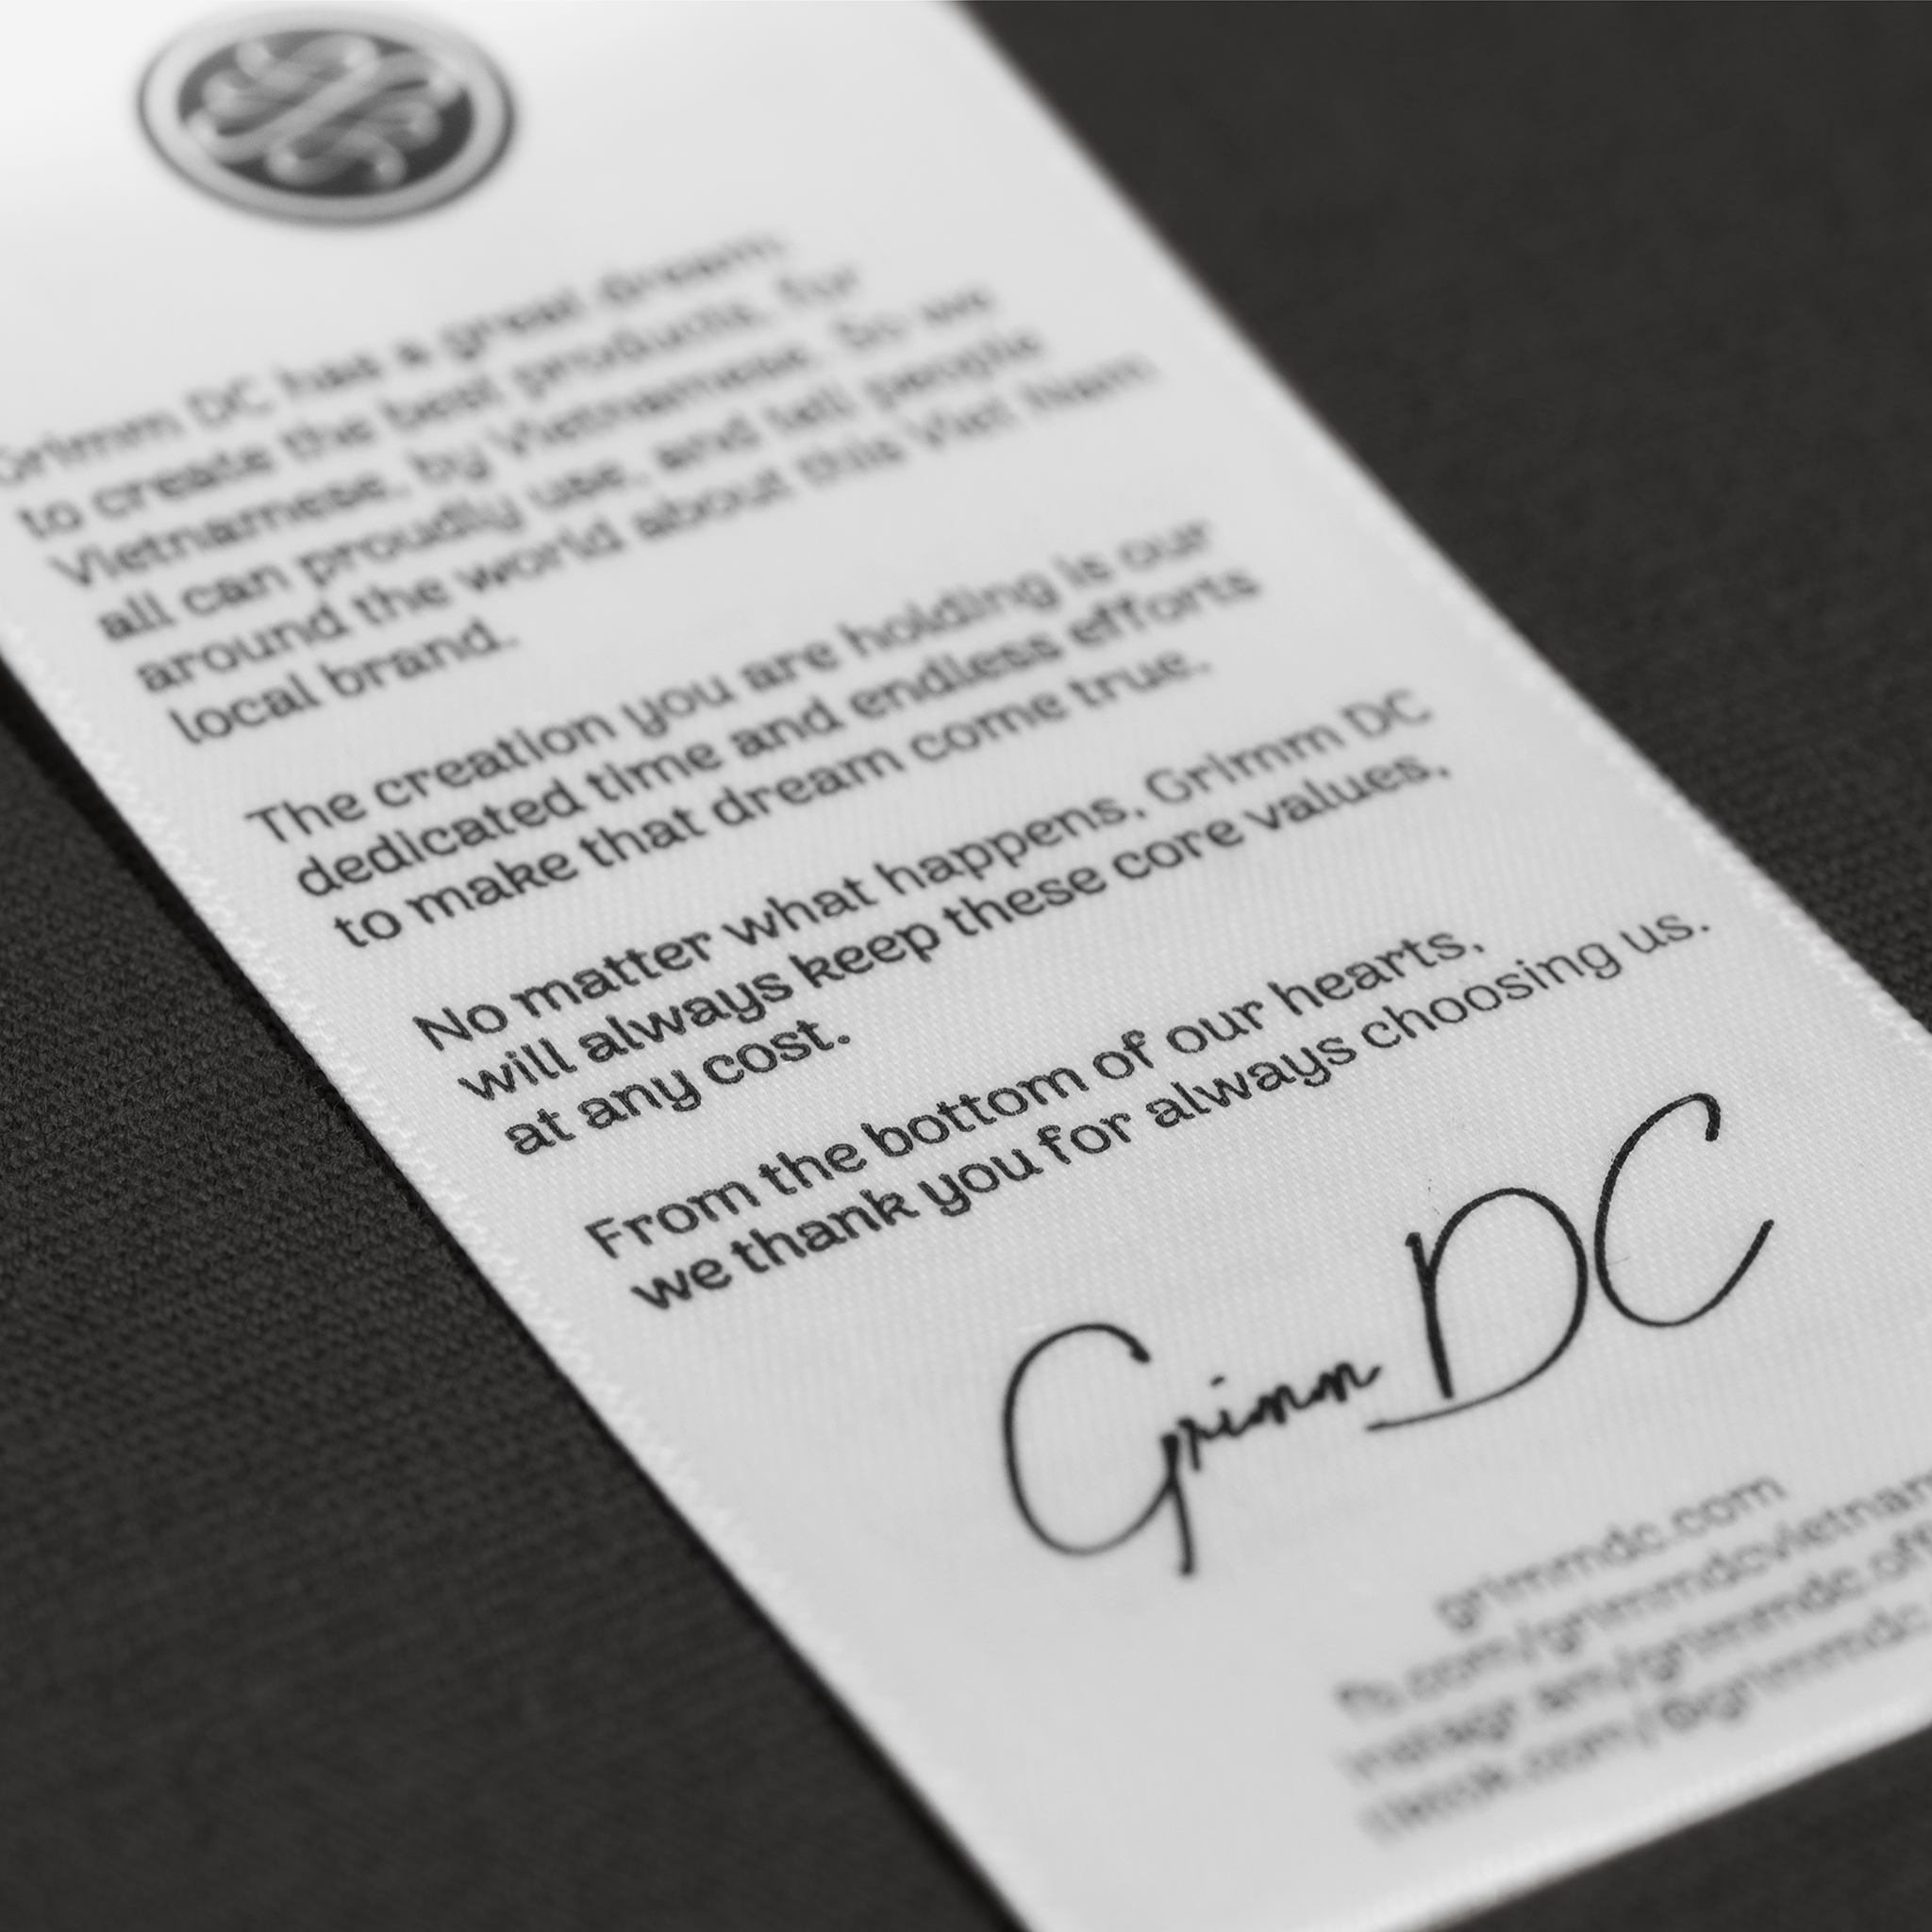 Grimm DC has a great dream:
to create the best products, for
Vietnamese, by Vietnamese. So we
all can proudly use, and tell people
around the world about this Viet Nam
local brand.
The creation you are holding is our
dedicated time and endless efforts
to make that dream come true.
No matter what happens, Grimm DC
will always keep these core values,
at any cost.
From the bottom of our hearts,
we thank you for always choosing us.
Grimm DC
grimmdc.com
fb.com/grimmdcvietnam
instagr.am/grimmdc.off
tiktok.com/@grimmdc